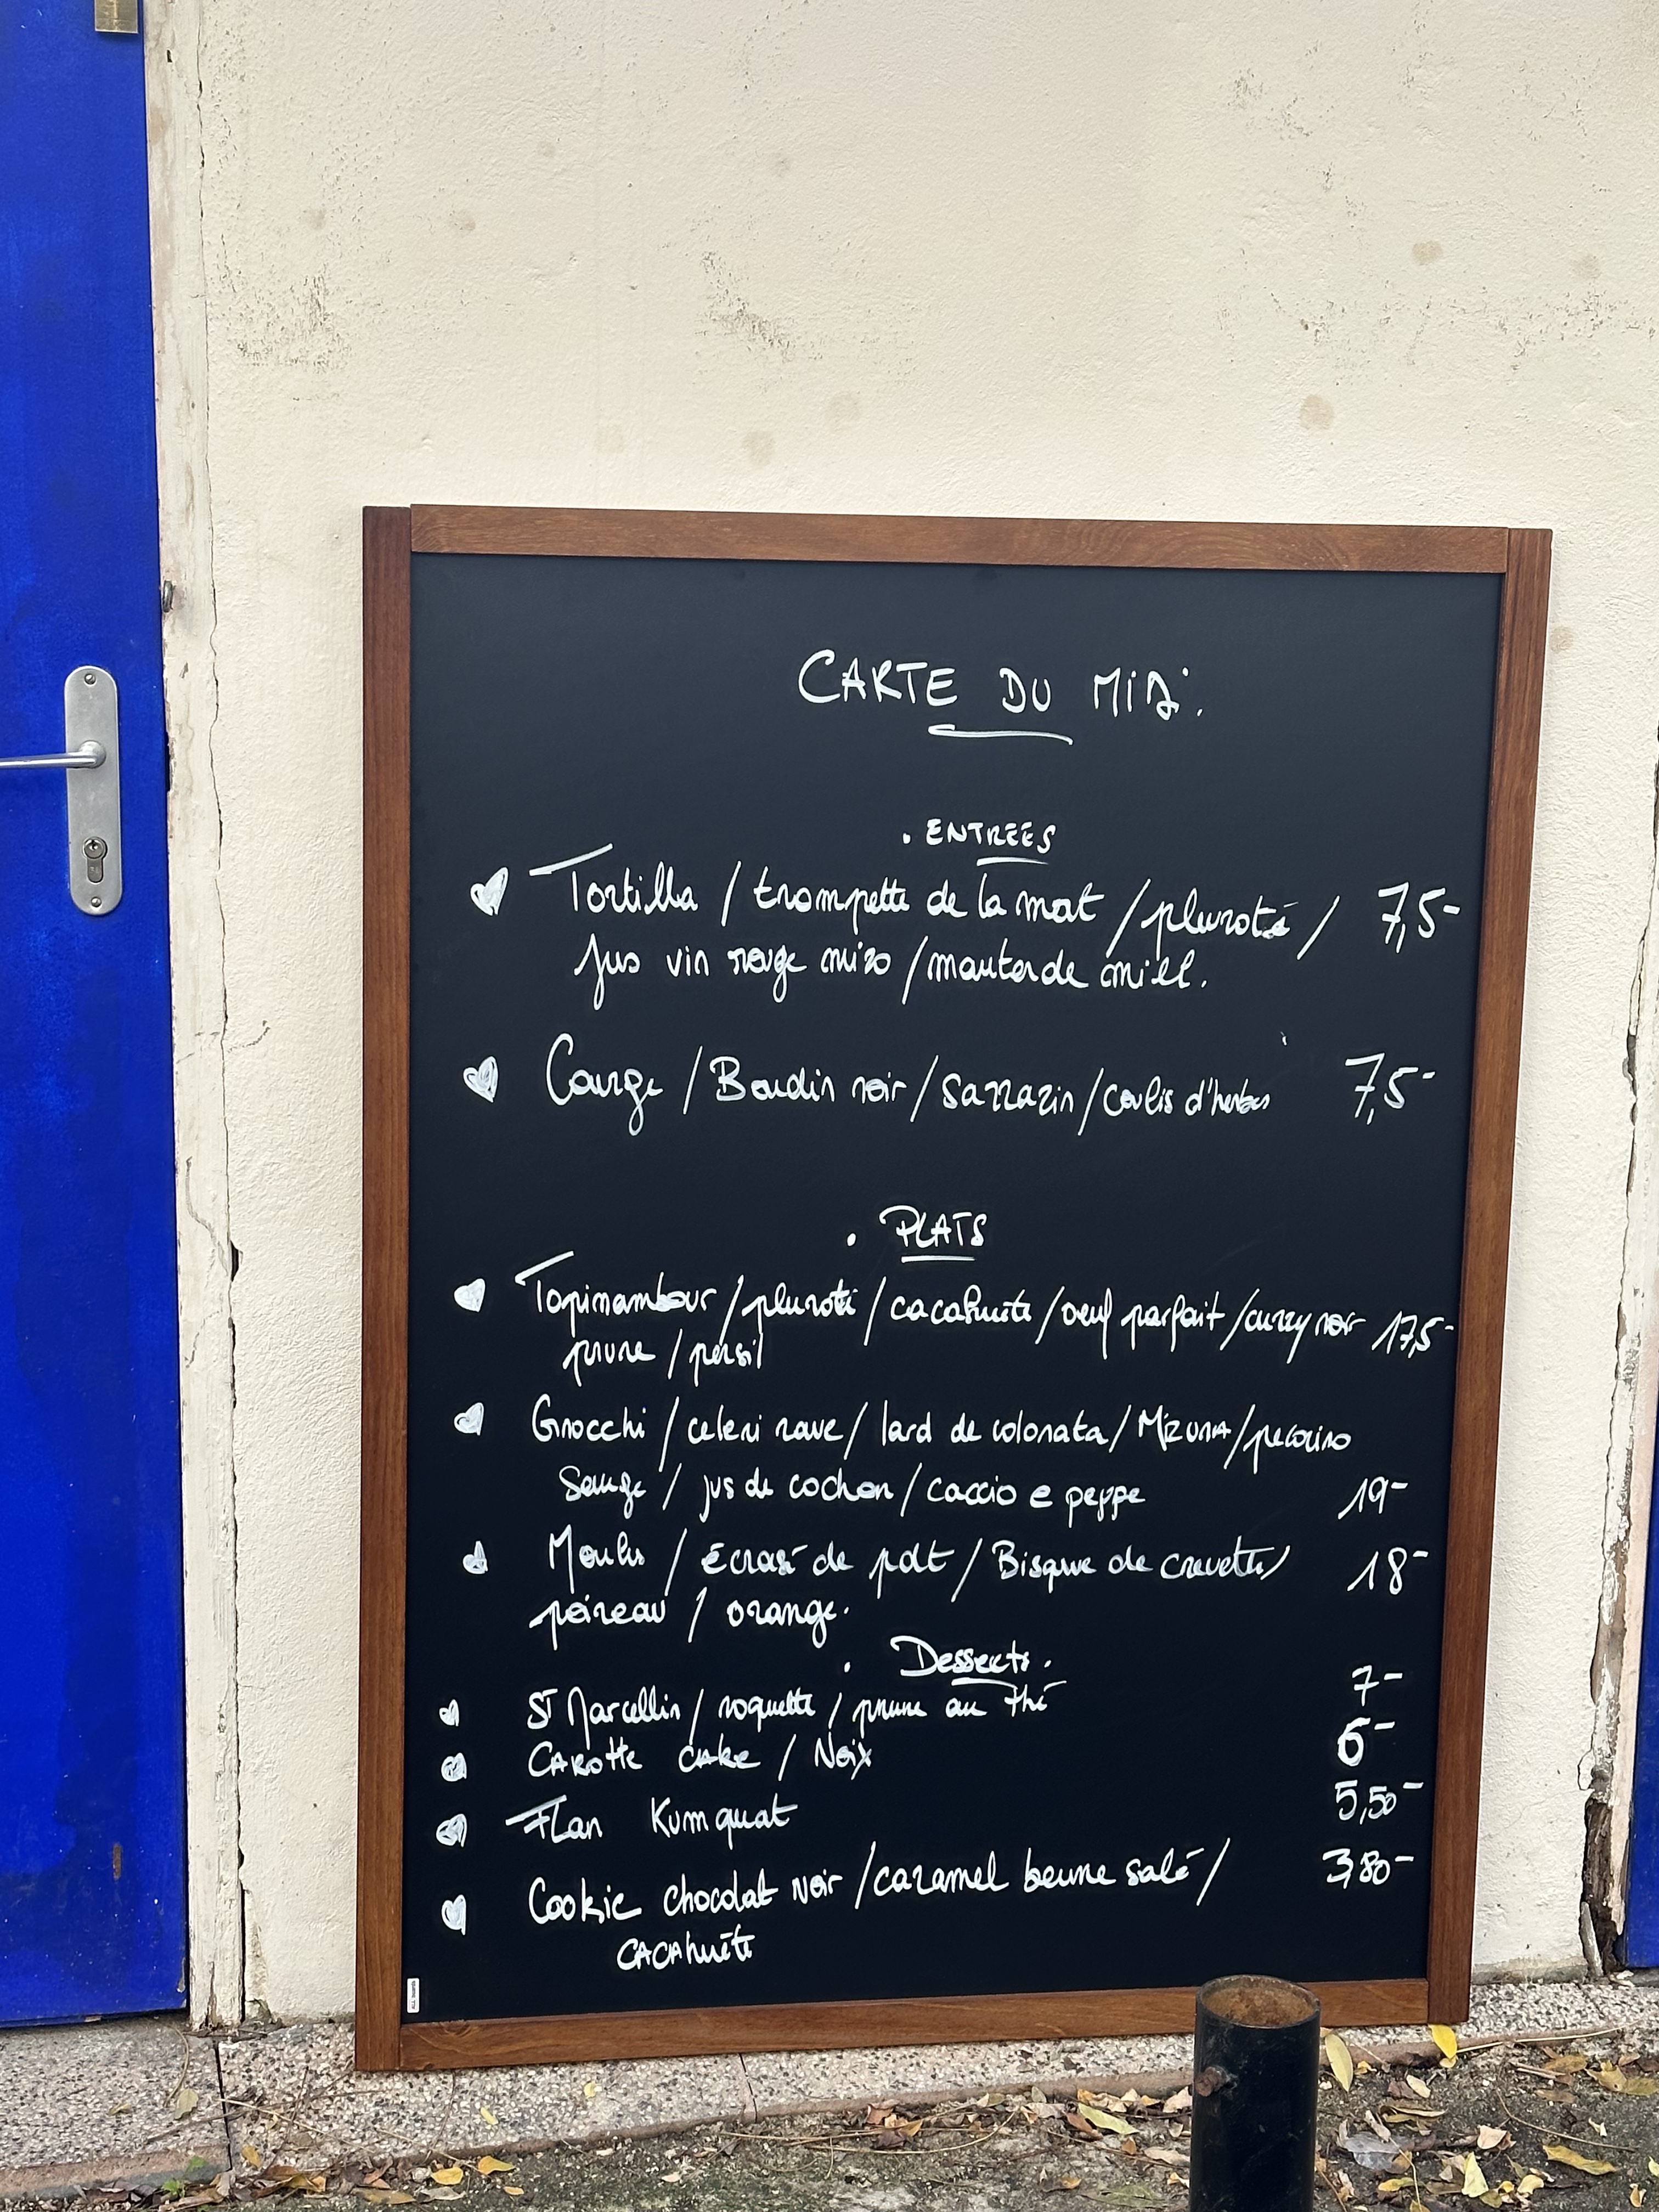 CARTE DU MIDI.
. ENTREES
Tortilla / trompette de la mort / pleurote / 7,5-
Jus vin rouge miso / moutarde miel.
Courge / Boudin noir / Sarrazin / coulis d'herbes 7,5-
. PLATS
Topinambour / pleurote / cacahuète / oeuf parfait / curry noir 17,5-
prune / persil
Gnocchi / celeri rave / lard de colonata / MizUNA / pecorino
Sauge / jus de cochon / caccio e peppe 19-
Moules / écrasé de pdt / Bisque de crevette / 18-
poireau / orange.
. Desserts.
ST Marcellin / roquette / prune au thé 7-
CAROTTE CAKE / Noix 6-
Flan Kumquat 5,50-
Cookie chocolat Noir / caramel beurre salé / 3,80-
CACAhuète